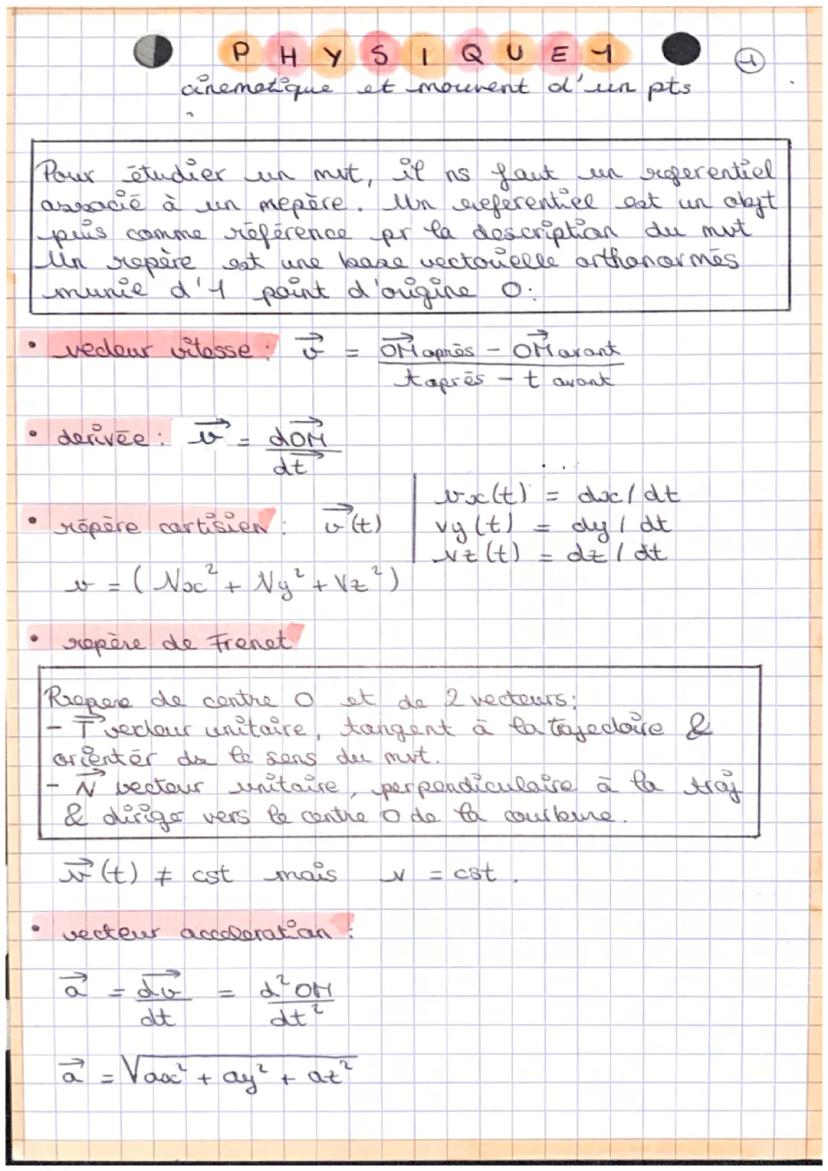 PHYSIQUE 1 1
cinematique et mouvent d'un pts
Pour étudier un mvt, il ns faut un referentiel
associé à un mepère. Un referentiel est un objt
puis comme référence pr la description du mvt
Un repère est une base vectorielle orthonormés
munie d'1 point d'origine O:
• vecteur vitesse : v⃗ = (OM⃗après - OM⃗avant) / (t après - t avant)
• derivée : v⃗ = dOM⃗ / dt⃗
• répère cartisien : v⃗(t) | vx(t) = dx / dt
vy(t) = dy / dt
vz(t) = dz / dt
v = (Vx² + Vy² + Vz²)
• repère de Frenet
Repere de centre O et de 2 vecteurs:
- T⃗ vecteur unitaire, tangent à la trajectoire &
orientér ds le sens du mvt.
- N⃗ vecteur unitaire, perpendiculaire à la traj
& dirige vers le centre O de la courbure.
v⃗(t) ≠ cst mais v = cst.
• vecteur acceleration :
a⃗ = dv⃗/dt = d²OM/dt²
a⃗ = √(ax² + ay² + az²)